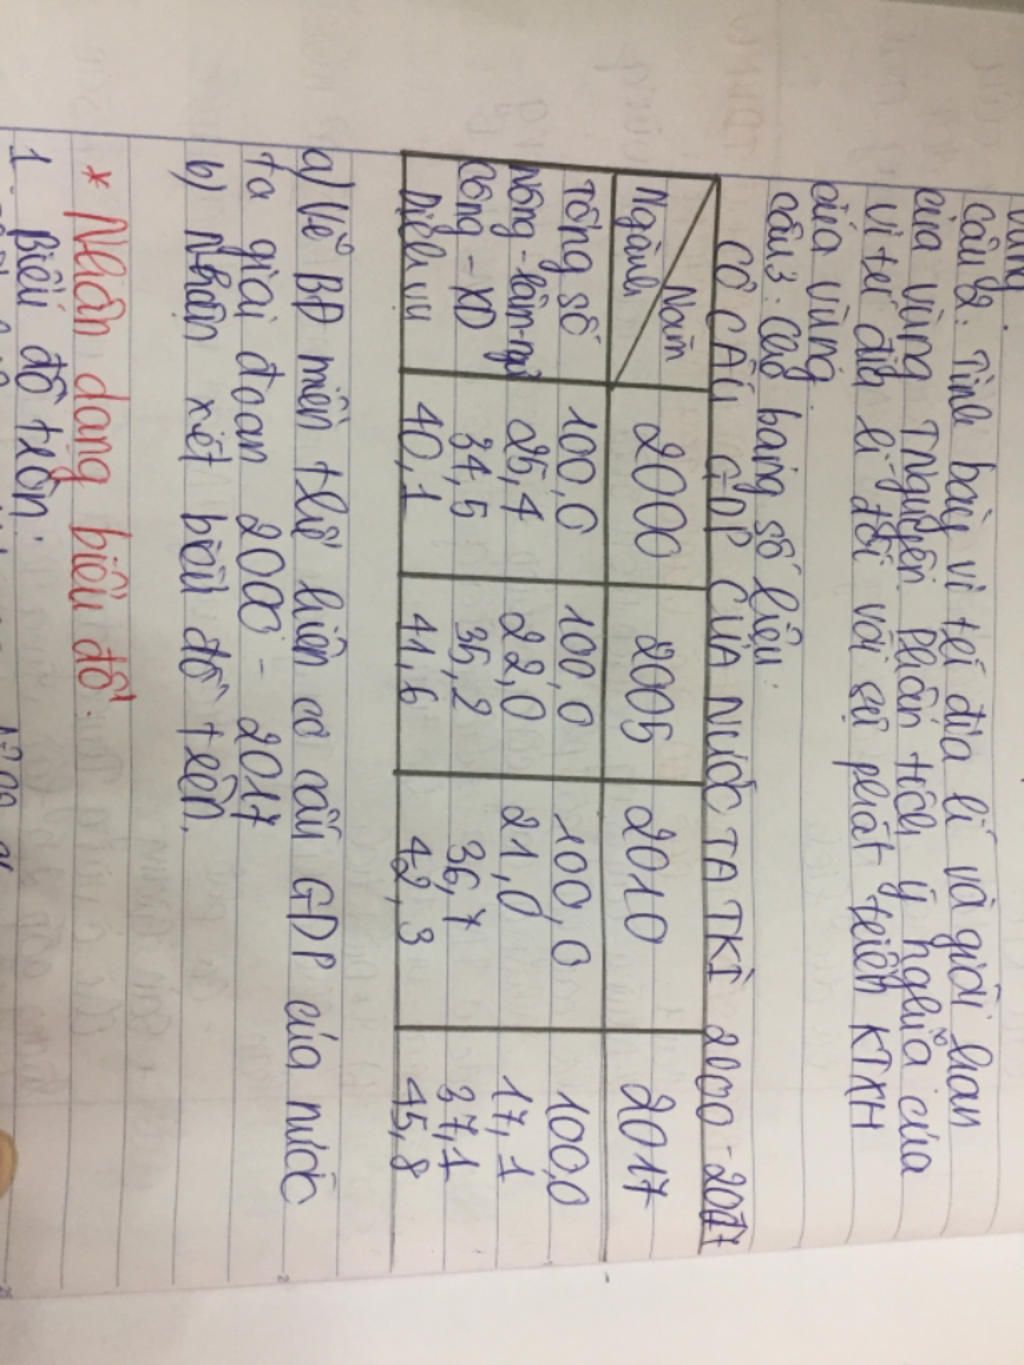 vùng.
câu 2: Trình bày vị trí địa lí và giới hạn
của vùng TNguyên. Phân tích ý nghĩa của
vị trí địa lí đối với sự phát triển KTXH
của vùng
câu 3: Cho bảng số liệu:
CƠ CẤU GDP CỦA NƯỚC TA TKÌ 2000 - 2017
Năm
Ngành 2000 2005 2010 2017
Tổng số 100,0 100,0 100,0 100,0
Nông - lâm - ngư 25,4 22,0 21,0 17,1
Công - XD 34,5 35,2 36,7 37,1
Dịch vụ 40,1 41,6 42,3 45,8
a) Vẽ BĐ miền thể hiện cơ cấu GDP của nước
ta giai đoạn 2000 - 2017
b) Nhận xét biểu đồ trên.
* Nhận dạng biểu đồ.
1. Biểu đồ tròn: